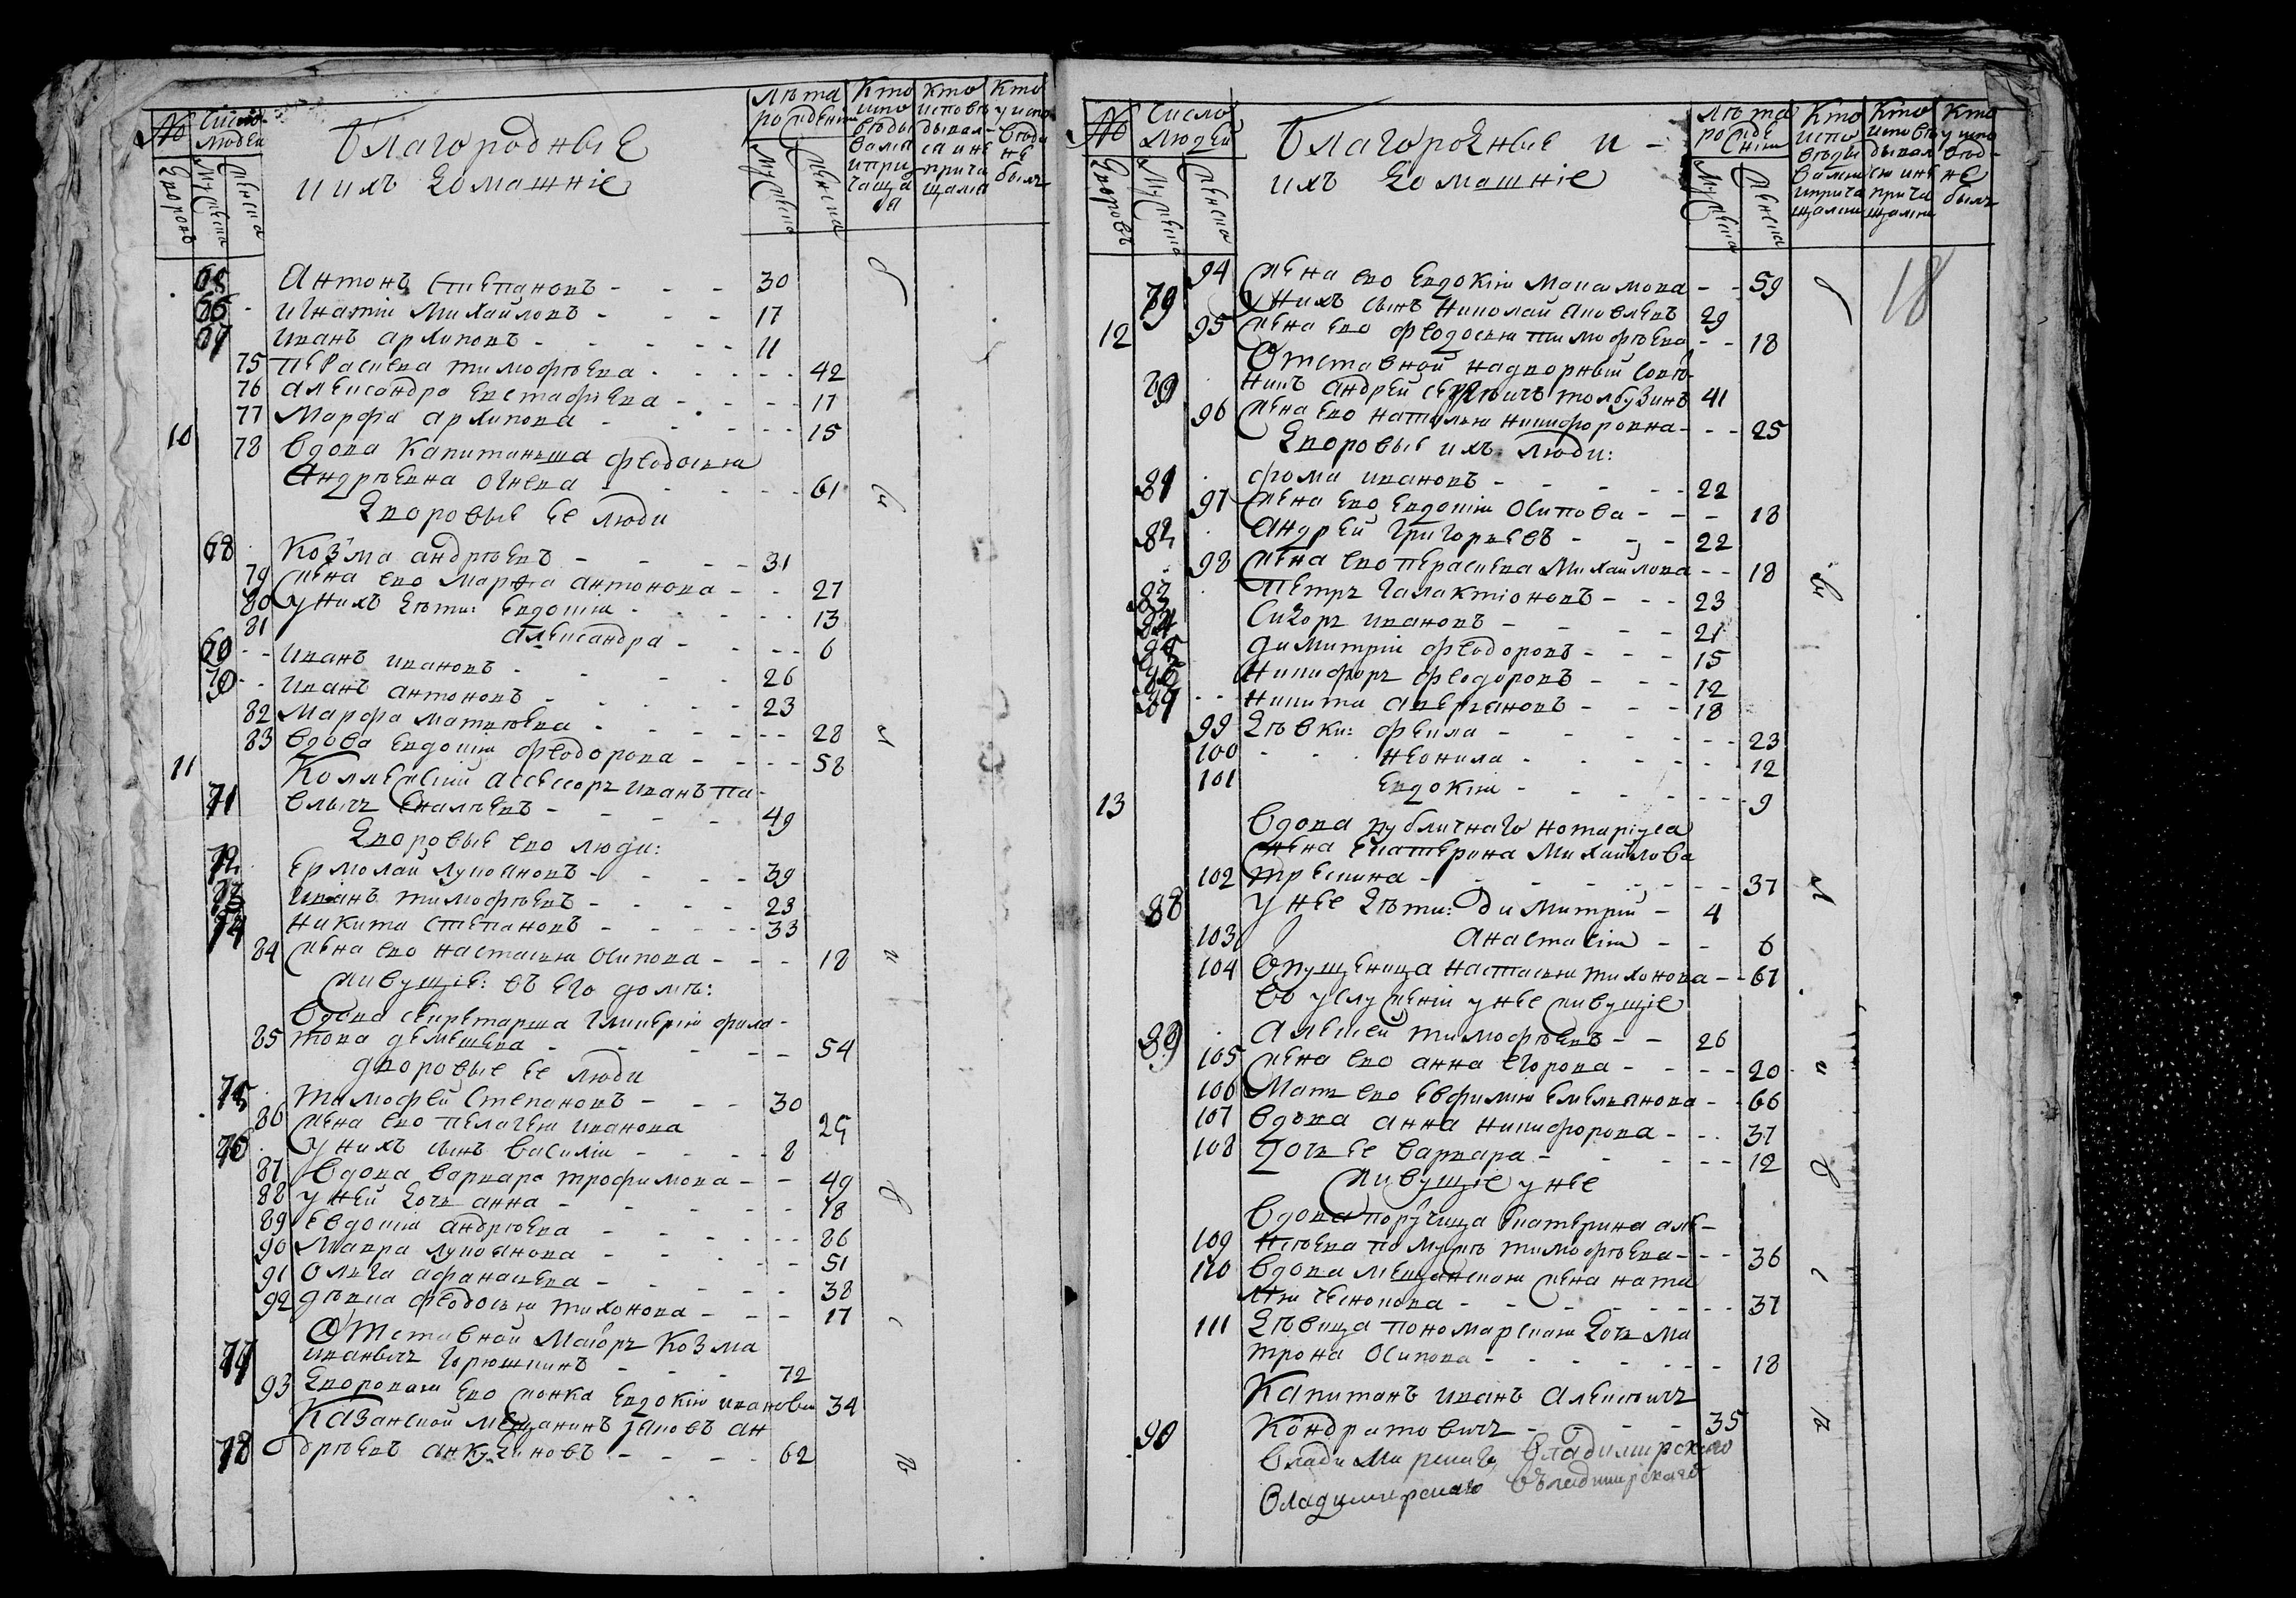 № Число людей Благородныѣ Лѣта рожденія Кто исповѣдывался и причащался Кто исповѣдывался и не причащался Кто у исповѣди не былъ
и ихъ домашніе
Дворовъ Мужеска Женска Мужеска Женска
65 Антонъ Степановъ - - - 30
66 Игнатій Михайловъ - - - 17
67 Иванъ Архиповъ - - - 11
75 Пераскева Тимофѣева - - - 42
76 Александра Евстафіева - - - 17
77 Марфа Архипова - - - 15
10 78 Вдова Капитанша Феодосья
Андрѣевна Огнева - - - 61
Дворовые ее люди
68 Козма Андрѣевъ - - - 31
79 Жена ево Марфа Антонова - - 27
80 У нихъ дѣти: Евдокия - - - 13
81 Александра - - - 6
69 Иванъ Ивановъ - - - 26
70 Иванъ Антоновъ - - - 23
82 Марфа Матвѣева - - - 28
83 Вдова Евдокия Феодорова - - - 58
11 Коллежскій Ассессоръ Иванъ Па-
71 влычъ - - - 49
Дворовые ево люди:
72 Ермолай Лукояновъ - - - 39
73 Иванъ Тимофѣевъ - - - 23
74 Никита Степановъ - - - 33
84 Жена ево Настасья Осипова - - - 18
Живущіе: въ его домѣ:
Вдова Секретарша Гликерія Фила-
85 това Демешева - - - 54
Дворовые ее люди
75 Тимофей Степановъ - - - 30
86 Жена ево Пелагея Иванова 25
76 У нихъ сынъ Василій - - - 8
87 Вдова Варвара Трофимова - - 49
88 У ней дочь Анна - - - 18
89 Евдокия Андрѣева - - - 86
90 Мавра Лукоянова - - - 51
91 Ольга Афанасьева - - - 38
92 Дѣвка Феодосья Тихонова - - - 17
Отставной Маіоръ Козма
77 Иванычъ Горюшкинъ - - - 72
93 Дворовая ево жонка Евдокія Иванова 34
Казанской мещанинъ Яковъ Ан
78 дрѣевъ Анкудиновъ - - - 62
№ Число людей Благородные и - Лѣта рожденія Кто исповѣдывался и причащался Кто исповѣдывался и не причащался Кто у исповѣди не былъ
ихъ домашніе
Дворовъ Мужеска Женска Мужеска Женска
94 Жена ево Евдокія Максимова - - 59
79 У нихъ сынъ Николай Яковлевъ 29
12 95 Жена ево Феодосья Тимофѣева - - 18
Отставной надворный совѣт-
80 никъ Андрей Сергѣичъ Толбузинъ 41
96 Жена ево Наталья Никифоровна - - - 25
Дворовые ихъ люди:
81 Фома Ивановъ - - - 22
97 Жена ево Евдокия Осипова - - - 18
82 Андрей Григорьевъ - - - 22
98 Жена ево Пераскева Михайлова - - 18
83 Петръ Галактіоновъ - - - 23
84 Сидоръ Ивановъ - - - 21
85 Димитрій Феодоровъ - - - 15
86 Никифоръ Феодоровъ - - - 12
87 Никита Аверьяновъ - - - 18
99 Дѣвки: Фекла - - - 23
100 Неонила - - - 12
101 Евдокія - - - 9
13 Вдова публичнаго нотаріуса
жена Екатерина Михайлова
102 - - - 37
88 У нее дѣти: Димитрій - 4
103 Анастасія - - 6
104 Впущеница Настасья Тихонова - - 67
Въ услуженіи у нее живущіе
89 Алексей Тимофѣевъ - - 26
105 Жена ево Анна Егорова - - - 20
106 Мать ево Евфимия Емельянова - - 66
107 Вдова Анна Никифорова - - - 37
108 Дочь ее Варвара - - - 12
Живущіе у нее
Вдова порутчица Екатерина Але-
109 ксѣева по мужѣ Тимофѣева - - - 36
110 Вдова мещанская жена Ната
лья - - - 37
111 Дѣвица пономарская дочь Ма
трона Осипова - - - 18
Капитанъ Иванъ Алексѣичъ
90 Кондратовичъ - - - 35
Владимирскаго Владимирскаго
Владимирскаго Владимирскаго
18